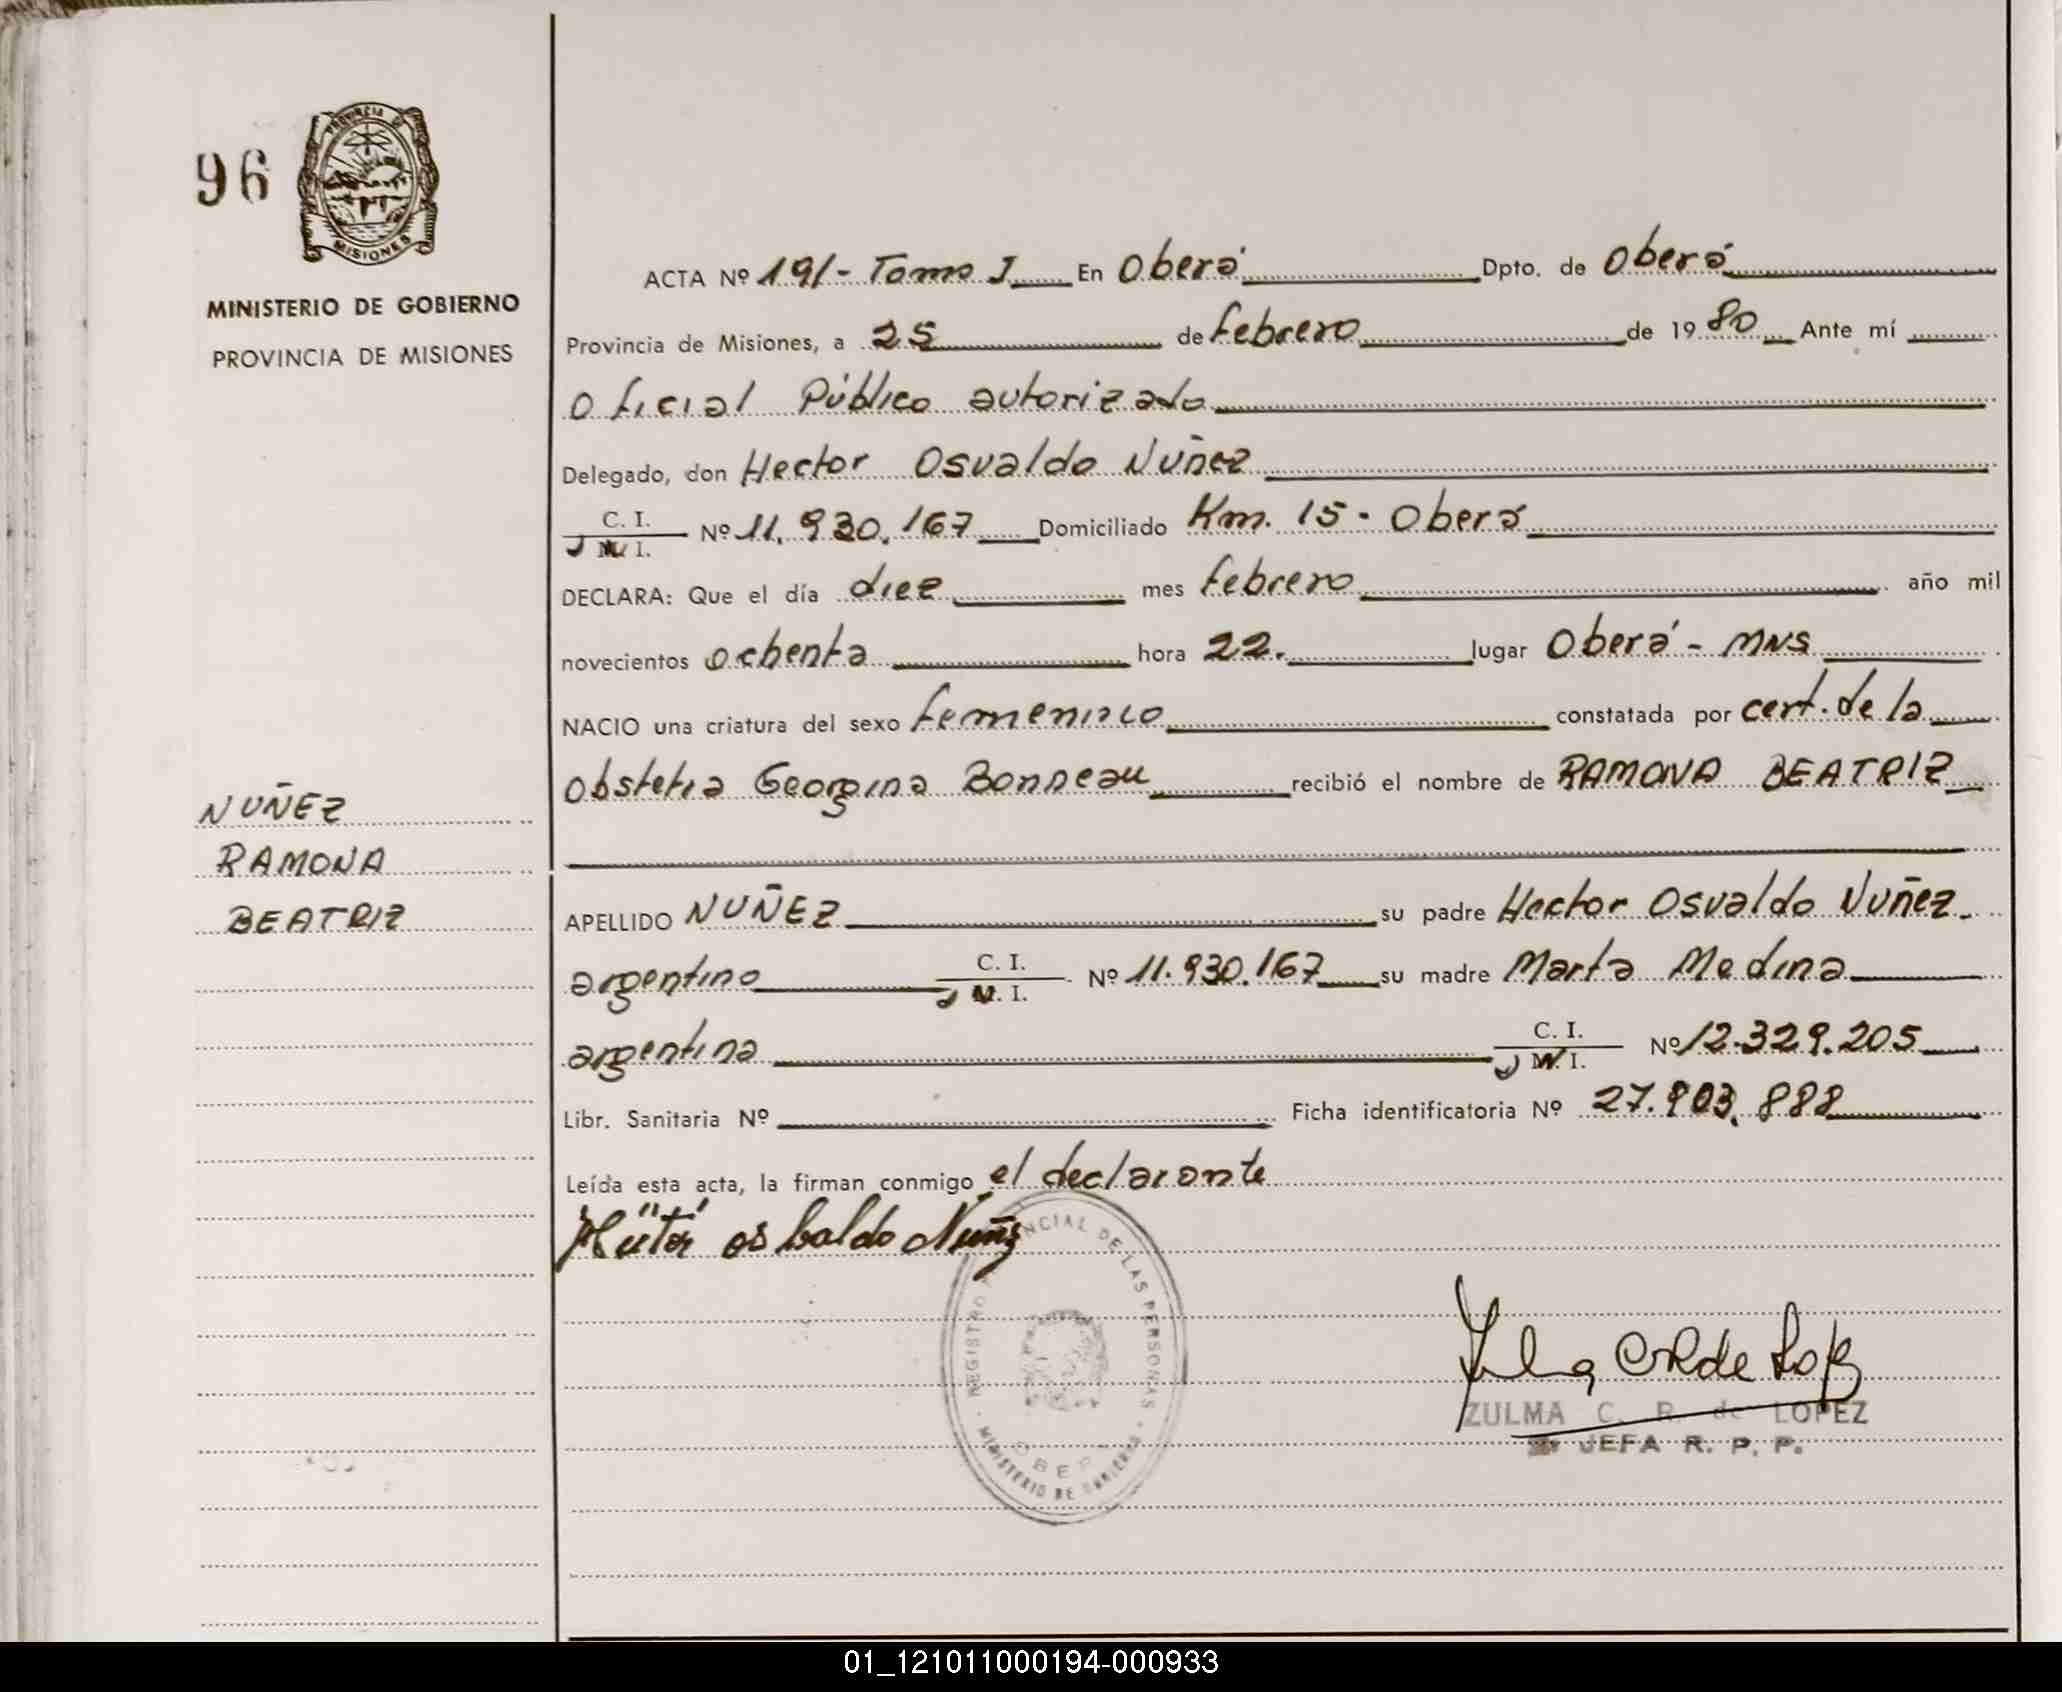 96
PROVINCIA DE
MISIONES
MINISTERIO DE GOBIERNO
PROVINCIA DE MISIONES
ACTA Nº 191- Tomo I En Oberá Dpto. de Oberá
Provincia de Misiones, a 25 de febrero de 1980 Ante mí
Oficial Público autorizado
Delegado, don Hector Osvaldo Nuñez
C. I.
M. I. Nº 11.930.167 Domiciliado Km. 15 - Oberá
DECLARA: Que el día diez mes febrero año mil
novecientos ochenta hora 22. lugar Oberá - MNS
NACIO una criatura del sexo femenino constatada por cert. de la
Obstetra Georgina Bonneau recibió el nombre de RAMONA BEATRIZ
NUÑEZ
RAMONA
BEATRIZ
APELLIDO NUÑEZ su padre Hector Osvaldo Nuñez.
argentino C. I.
M. I. Nº 11.930.167 su madre Marta Medina
argentina C. I.
M. I. Nº 12.329.205
Libr. Sanitaria Nº Ficha identificatoria Nº 27.903.888
Leída esta acta, la firman conmigo el declarante
osbaldo Nuñz
REGISTRO PROVINCIAL DE LAS PERSONAS
MINISTERIO DE GOBIERNO
OBERA
ZULMA C. R. de LOPEZ
JEFA R. P. P.
01_121011000194-000933